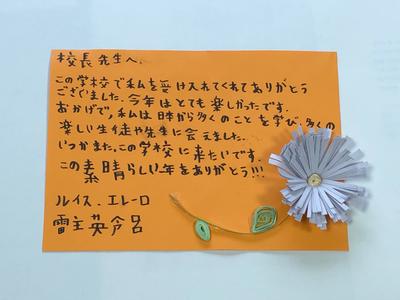 校長先生へ、
この学校で私を受け入れてくれてありがとう
ございました。今年はとても楽しかったです。
おかげで、私は日本から多くのことを学び、多くの
楽しい生徒や先生に会えました。
いつかまた、この学校に来たいです。
この素晴らしい年をありがとう!!!
ルイス・エレーロ
雷主英令呂